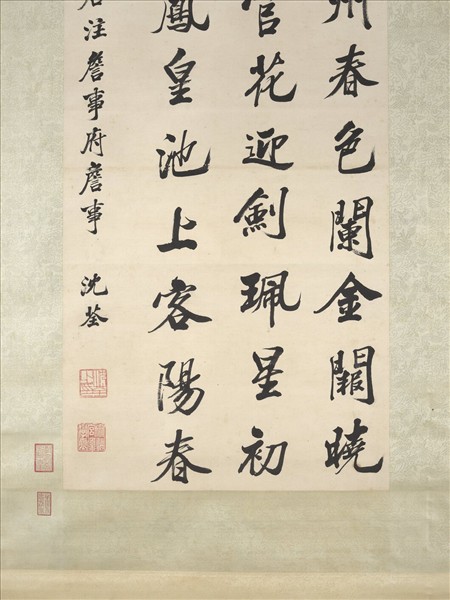 州春色闌金闕曉
官花迎劍珮星初
鳳皇池上客陽春
注詹事府詹事
沈荃